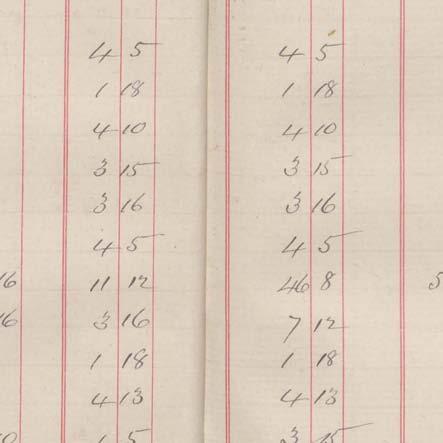 4 5 4 5
1 18 1 18
4 10 4 10
3 15 3 15
3 16 3 16
4 5 4 5
16 11 12 46 8 5
16 3 16 7 12
1 18 1 18
4 13 4 13
1 5 3 15